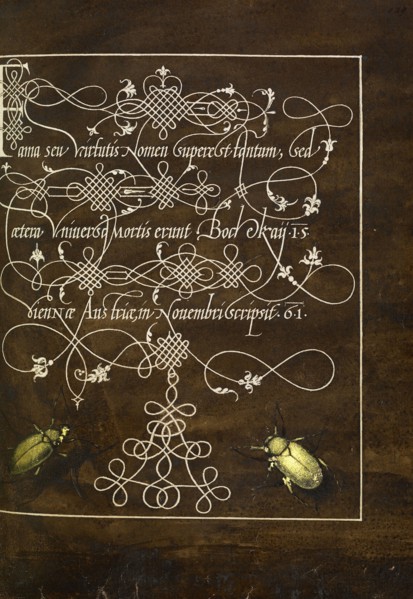 Fama seu Virtutis Nomen Superest tantum, Sed
ætera Vniversa Mortis erunt. Bočkaÿ. 15.
VienNæ Austriæ, in Nouembri Scripsit. 61.